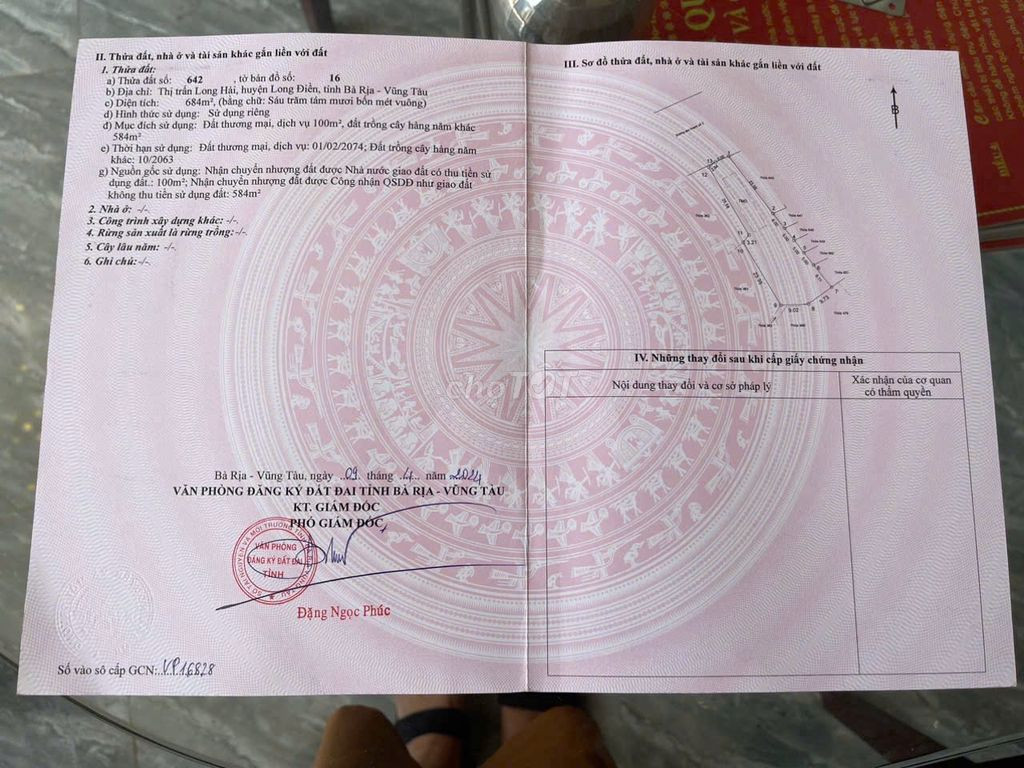 II. Thửa đất, nhà ở và tài sản khác gắn liền với đất
1. Thửa đất:
a) Thửa đất số: 642 , tờ bản đồ số: 16
b) Địa chỉ: Thị trấn Long Hải, huyện Long Điền, tỉnh Bà Rịa - Vũng Tàu
c) Diện tích: 684m², (bằng chữ: Sáu trăm tám mươi bốn mét vuông)
d) Hình thức sử dụng: Sử dụng riêng
đ) Mục đích sử dụng: Đất thương mại, dịch vụ 100m², đất trồng cây hàng năm khác
584m²
e) Thời hạn sử dụng: Đất thương mại, dịch vụ: 01/02/2074; Đất trồng cây hàng năm
khác: 10/2063
g) Nguồn gốc sử dụng: Nhận chuyển nhượng đất được Nhà nước giao đất có thu tiền sử
dụng đất.: 100m²; Nhận chuyển nhượng đất được Công nhận QSDĐ như giao đất
không thu tiền sử dụng đất: 584m²
2. Nhà ở: -/-
3. Công trình xây dựng khác: -/-.
4. Rừng sản xuất là rừng trồng:-/-.
5. Cây lâu năm: -/-.
6. Ghi chú:-/-
Bà Rịa - Vũng Tàu, ngày ..09.. tháng ..4... năm 2024
VĂN PHÒNG ĐĂNG KÝ ĐẤT ĐAI TỈNH BÀ RỊA - VŨNG TÀU
KT. GIÁM ĐỐC
PHÓ GIÁM ĐỐC
VĂN PHÒNG
ĐĂNG KÝ ĐẤT ĐAI
TỈNH
Đặng Ngọc Phúc
Số vào sổ cấp GCN:..VP16828
III. Sơ đồ thửa đất, nhà ở và tài sản khác gắn liền với đất
B
13
12
11
10
3.21
9
9.02
8
9.73
7
IV. Những thay đổi sau khi cấp giấy chứng nhận
Nội dung thay đổi và cơ sở pháp lý
Xác nhận của cơ quan
có thẩm quyền
choTỐT